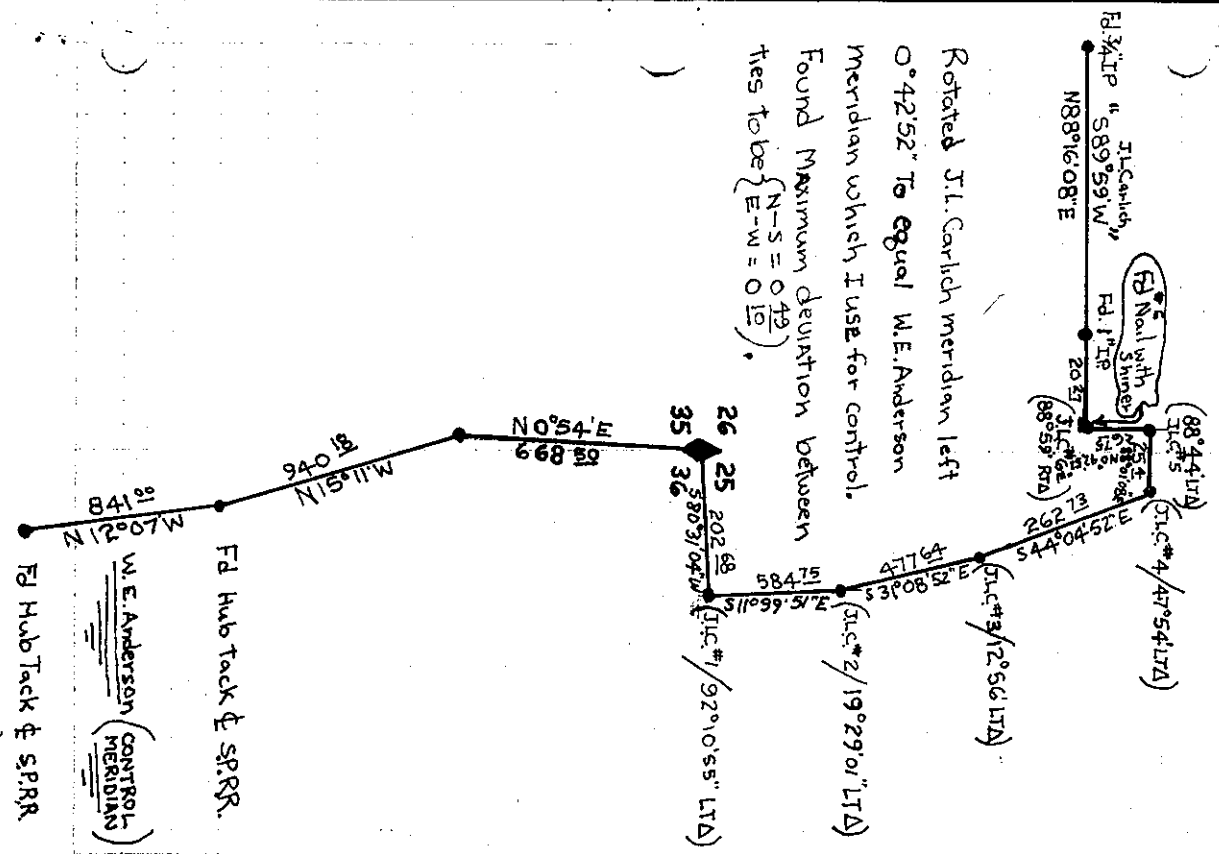 Fd. 3/4" IP
J.L. Carlich
"S89°59'W"
N88°16'08"E
Fd. 1" IP
Fd #6 Nail with Shiner
20 27
(88°44' LTΔ)
J.L.C. #5
J.L.C. #6
88°59' RTΔ)
(J.L.C. #4 / 47°54' LTΔ)
262 73
S44°04'52"E
(J.L.C. #3 / 12°56' LTΔ)
477 64
S31°08'52"E
(J.L.C. #2 / 19°29'01" LTΔ)
584 75
S11°99'51"E
(J.L.C. #1 / 92°10'55" LTΔ)
202 68
S80°31'04"W
Rotated J.L. Carlich meridian left
0°42'52" To equal W.E. Anderson
meridian which I use for control.
Found Maximum deviation between
ties to be {N-S = 0 49
E-W = 0 10}.
26 25
35 36
N0°54'E
668 50
940 18
N15°11'W
841 00
N12°07'W
Fd Hub Tack ℄ S.P.RR.
W.E. Anderson (CONTROL
MERIDIAN)
Fd Hub Tack ℄ S.P.RR